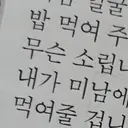 밥 먹여 주
무슨 소립니
내가 미남에
먹여줄 겁니